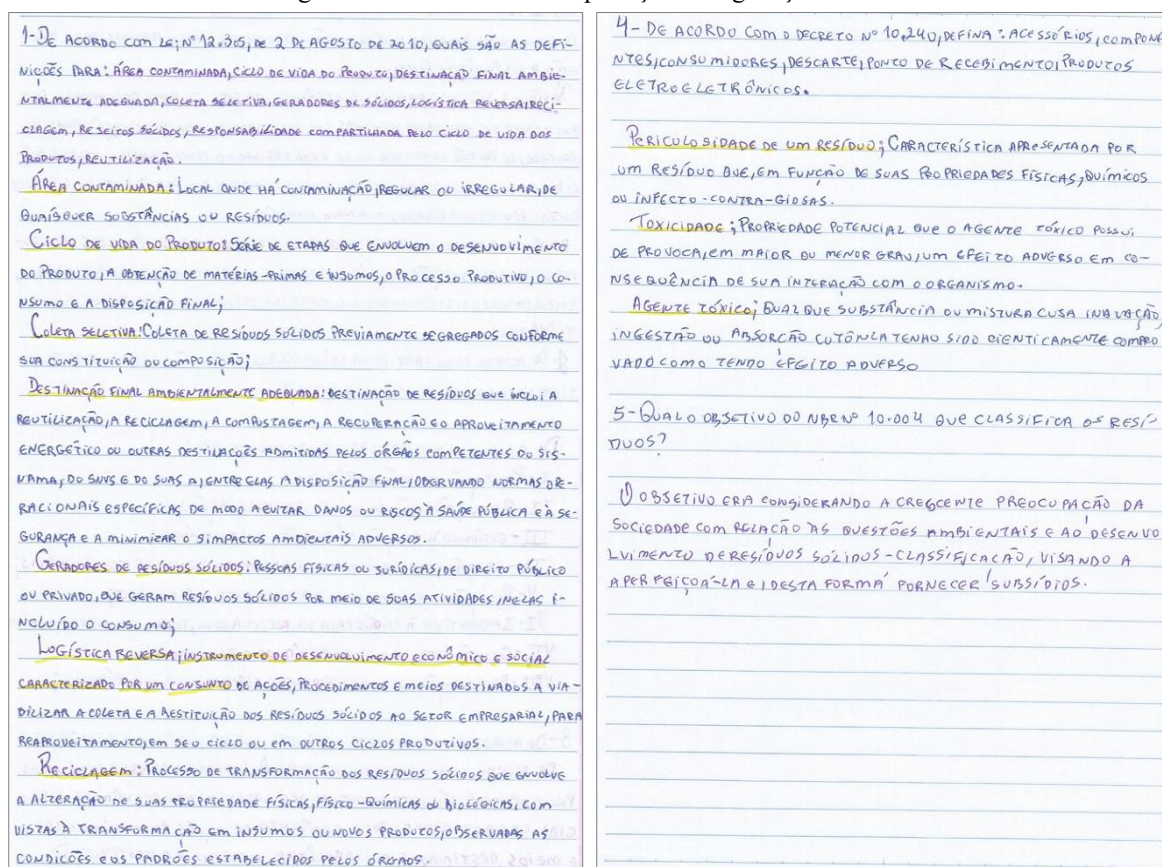 1-DE ACORDO COM LEI Nº 12.305, DE 2 DE AGOSTO DE 2010, QUAIS SÃO AS DEFI-
NIÇÕES PARA: ÁREA CONTAMINADA, CICLO DE VIDA DO PRODUTO, DESTINAÇÃO FINAL AMBIE-
NTALMENTE ADEQUADA, COLETA SELETIVA, GERADORES DE SÓLIDOS, LOGÍSTICA REVERSA, RECI-
CLAGEM, REJEITOS SÓLIDOS, RESPONSABILIDADE COMPARTILHADA PELO CICLO DE VIDA DOS
PRODUTOS, REUTILIZAÇÃO.
ÁREA CONTAMINADA: LOCAL ONDE HÁ CONTAMINAÇÃO, REGULAR OU IRREGULAR, DE
QUAISQUER SUBSTÂNCIAS OU RESÍDUOS.
CICLO DE VIDA DO PRODUTO: SÉRIE DE ETAPAS QUE ENVOLVEM O DESENVOVIMENTO
DO PRODUTO, A OBTENÇÃO DE MATÉRIAS-PRIMAS E INSUMOS, O PROCESSO PRODUTIVO, O CO-
NSUMO E A DISPOSIÇÃO FINAL;
COLETA SELETIVA: COLETA DE RESÍDUOS SÓLIDOS PREVIAMENTE SEGREGADOS CONFORME
SUA CONSTITUIÇÃO OU COMPOSIÇÃO;
DESTINAÇÃO FINAL AMBIENTALMENTE ADEQUADA: DESTINAÇÃO DE RESÍDUOS QUE INCLUI A
REUTILIZAÇÃO, A RECICLAGEM, A COMPOSTAGEM, A RECUPERAÇÃO E O APROVEITAMENTO
ENERGÉTICO OU OUTRAS DESTINAÇÕES ADMITIDAS PELOS ÓRGÃOS COMPETENTES DO SIS-
NAMA, DO SNVS E DO SUASA, ENTRE ELAS A DISPOSIÇÃO FINAL, OBSERVANDO NORMAS OPE-
RACIONAIS ESPECÍFICAS DE MODO A EVITAR DANOS OU RISCOS À SAÚDE PÚBLICA E À SE-
GURANÇA E A MINIMIZAR OS IMPACTOS AMBIENTAIS ADVERSOS.
GERADORES DE RESÍDUOS SÓLIDOS: PESSOAS FÍSICAS OU JURÍDICAS, DE DIREITO PÚBLICO
OU PRIVADO, QUE GERAM RESÍDUOS SÓLIDOS POR MEIO DE SUAS ATIVIDADES, NELAS I-
NCLUÍDO O CONSUMO;
LOGÍSTICA REVERSA; INSTRUMENTO DE DESENVOLVIMENTO ECONÔMICO E SOCIAL
CARACTERIZADO POR UM CONJUNTO DE AÇÕES, PROCEDIMENTOS E MEIOS DESTINADOS A VIA-
BILIZAR A COLETA E A RESTITUIÇÃO DOS RESÍDUOS SÓLIDOS AO SETOR EMPRESARIAL, PARA
REAPROVEITAMENTO, EM SEU CICLO OU EM OUTROS CICLOS PRODUTIVOS.
RECICLAGEM: PROCESSO DE TRANSFORMAÇÃO DOS RESÍDUOS SÓLIDOS QUE ENVOLVE
A ALTERAÇÃO DE SUAS PROPRIEDADE FÍSICAS, FÍSICO-QUÍMICAS OU BIOLÓGICAS, COM
VISTAS À TRANSFORMAÇÃO EM INSUMOS OU NOVOS PRODUTOS, OBSERVADAS AS
CONDIÇÕES E OS PADRÕES ESTABELECIDOS PELOS ÓRGÃOS.
4-DE ACORDO COM O DECRETO Nº 10.240, DEFINA: ACESSÓRIOS, COMPONE
NTES, CONSUMIDORES, DESCARTE, PONTO DE RECEBIMENTO, PRODUTOS
ELETROELETRÔNICOS.
PERICULOSIDADE DE UM RESÍDUO; CARACTERÍSTICA APRESENTADA POR
UM RESÍDUO QUE, EM FUNÇÃO DE SUAS PROPRIEDADES FÍSICAS, QUÍMICOS
OU INFECTO-CONTRA-GIOSAS.
TOXICIDADE; PROPRIEDADE POTENCIAL QUE O AGENTE TÓXICO POSSUI
DE PROVOCA, EM MAIOR OU MENOR GRAU, UM EFEITO ADVERSO EM CO-
NSEQUÊNCIA DE SUA INTERAÇÃO COM O ORGANISMO.
AGENTE TÓXICO; QUALQUE SUBSTÂNCIA OU MISTURA CUJA INALAÇÃO,
INGESTÃO OU ABSORÇÃO TENHO SIDO CIENTICAMENTE COMPRO
VADO COMO TENDO EFEITO ADVERSO
5-QUAL O OBJETIVO DO NBR Nº 10.004 QUE CLASSIFICA OS RESÍ-
DUOS?
O OBJETIVO ERA CONSIDERANDO A CRESCENTE PREOCUPAÇÃO DA
SOCIEDADE COM RELAÇÃO ÀS QUESTÕES AMBIENTAIS E AO DESENVO
LVIMENTO DE RESÍDUOS SÓLIDOS-CLASSIFICAÇÃO, VISANDO A
APERFEIÇOÁ-LA E, DESTA FORMA FORNECER SUBSÍDIOS.